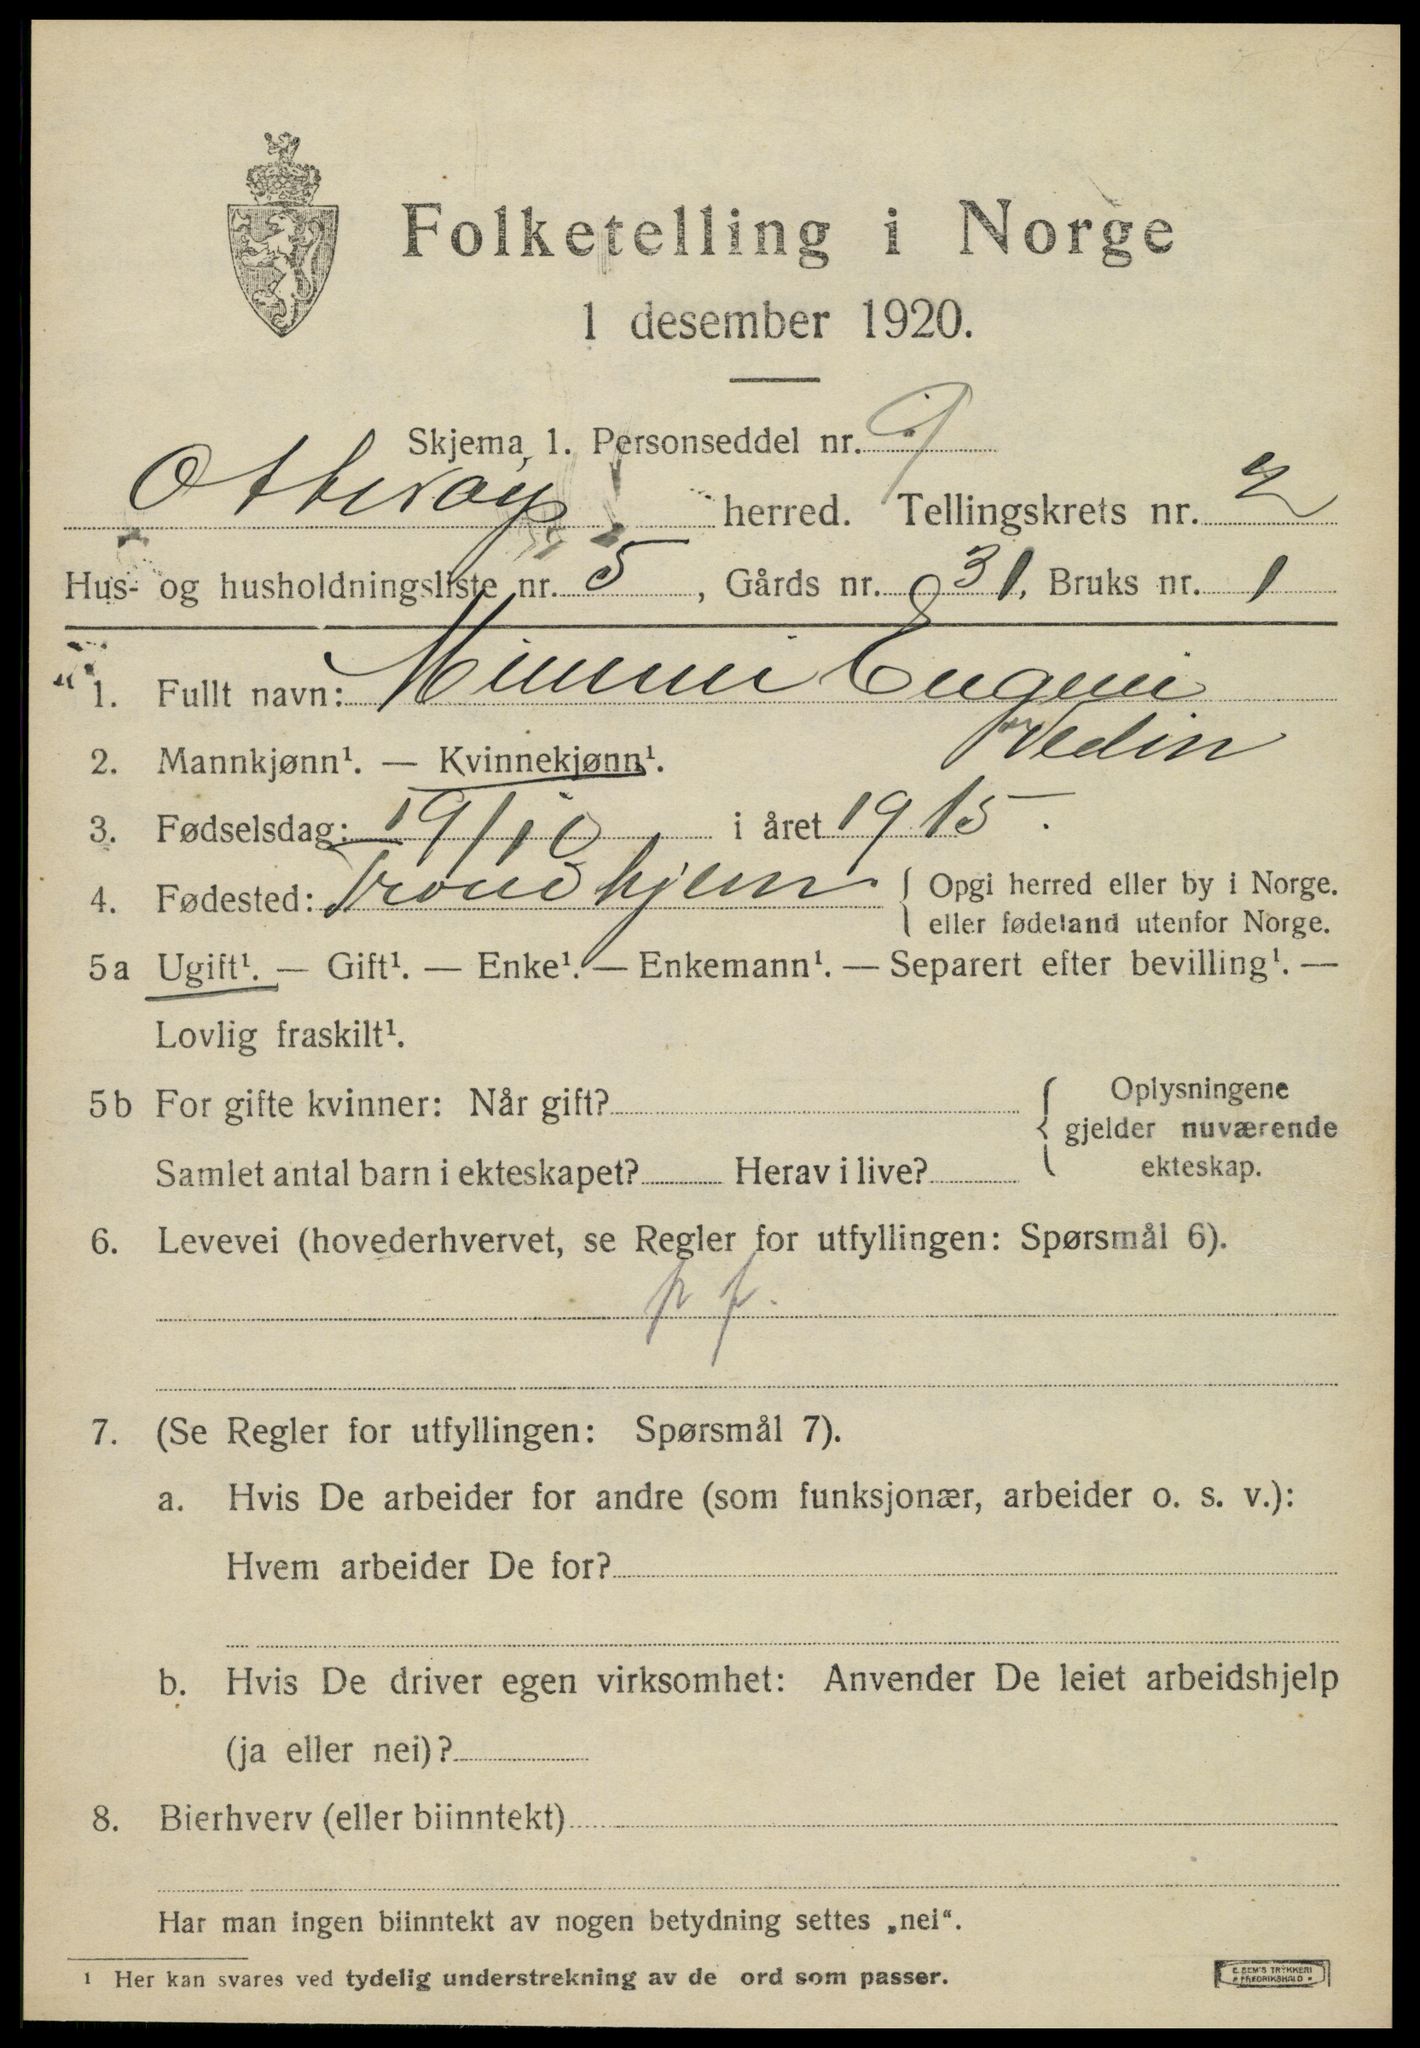 Folketelling i Norge
1 desember 1920.
Skjema 1. Personseddel nr. 9
Otterøy herred. Tellingskrets nr. 2
Hus- og husholdningsliste nr. 5, Gårds nr. 31, Bruks nr. 1
1. Fullt navn: Mimmi Eugeni
Vedin
2. Mannkjønn¹. — Kvinnekjønn¹.
3. Fødselsdag: 19/10 i året 1915.
4. Fødested: Trondhjem { Opgi herred eller by i Norge.
eller fødeland utenfor Norge.
5a Ugift¹. — Gift¹. — Enke¹. — Enkemann¹. — Separert efter bevilling¹. —
Lovlig fraskilt¹.
5b For gifte kvinner: Når gift?
Samlet antal barn i ekteskapet? Herav i live?
Oplysningene
gjelder nuværende
ekteskap.
6. Levevei (hovederhvervet, se Regler for utfyllingen: Spørsmål 6).
p f.
7. (Se Regler for utfyllingen: Spørsmål 7).
a. Hvis De arbeider for andre (som funksjonær, arbeider o. s. v.):
Hvem arbeider De for?
b. Hvis De driver egen virksomhet: Anvender De leiet arbeidshjelp
(ja eller nei)?
8. Bierhverv (eller biinntekt)
Har man ingen biinntekt av nogen betydning settes „nei“.
¹ Her kan svares ved tydelig understrekning av de ord som passer.
E. SEM'S TRYKKERI
FREDRIKSHALD